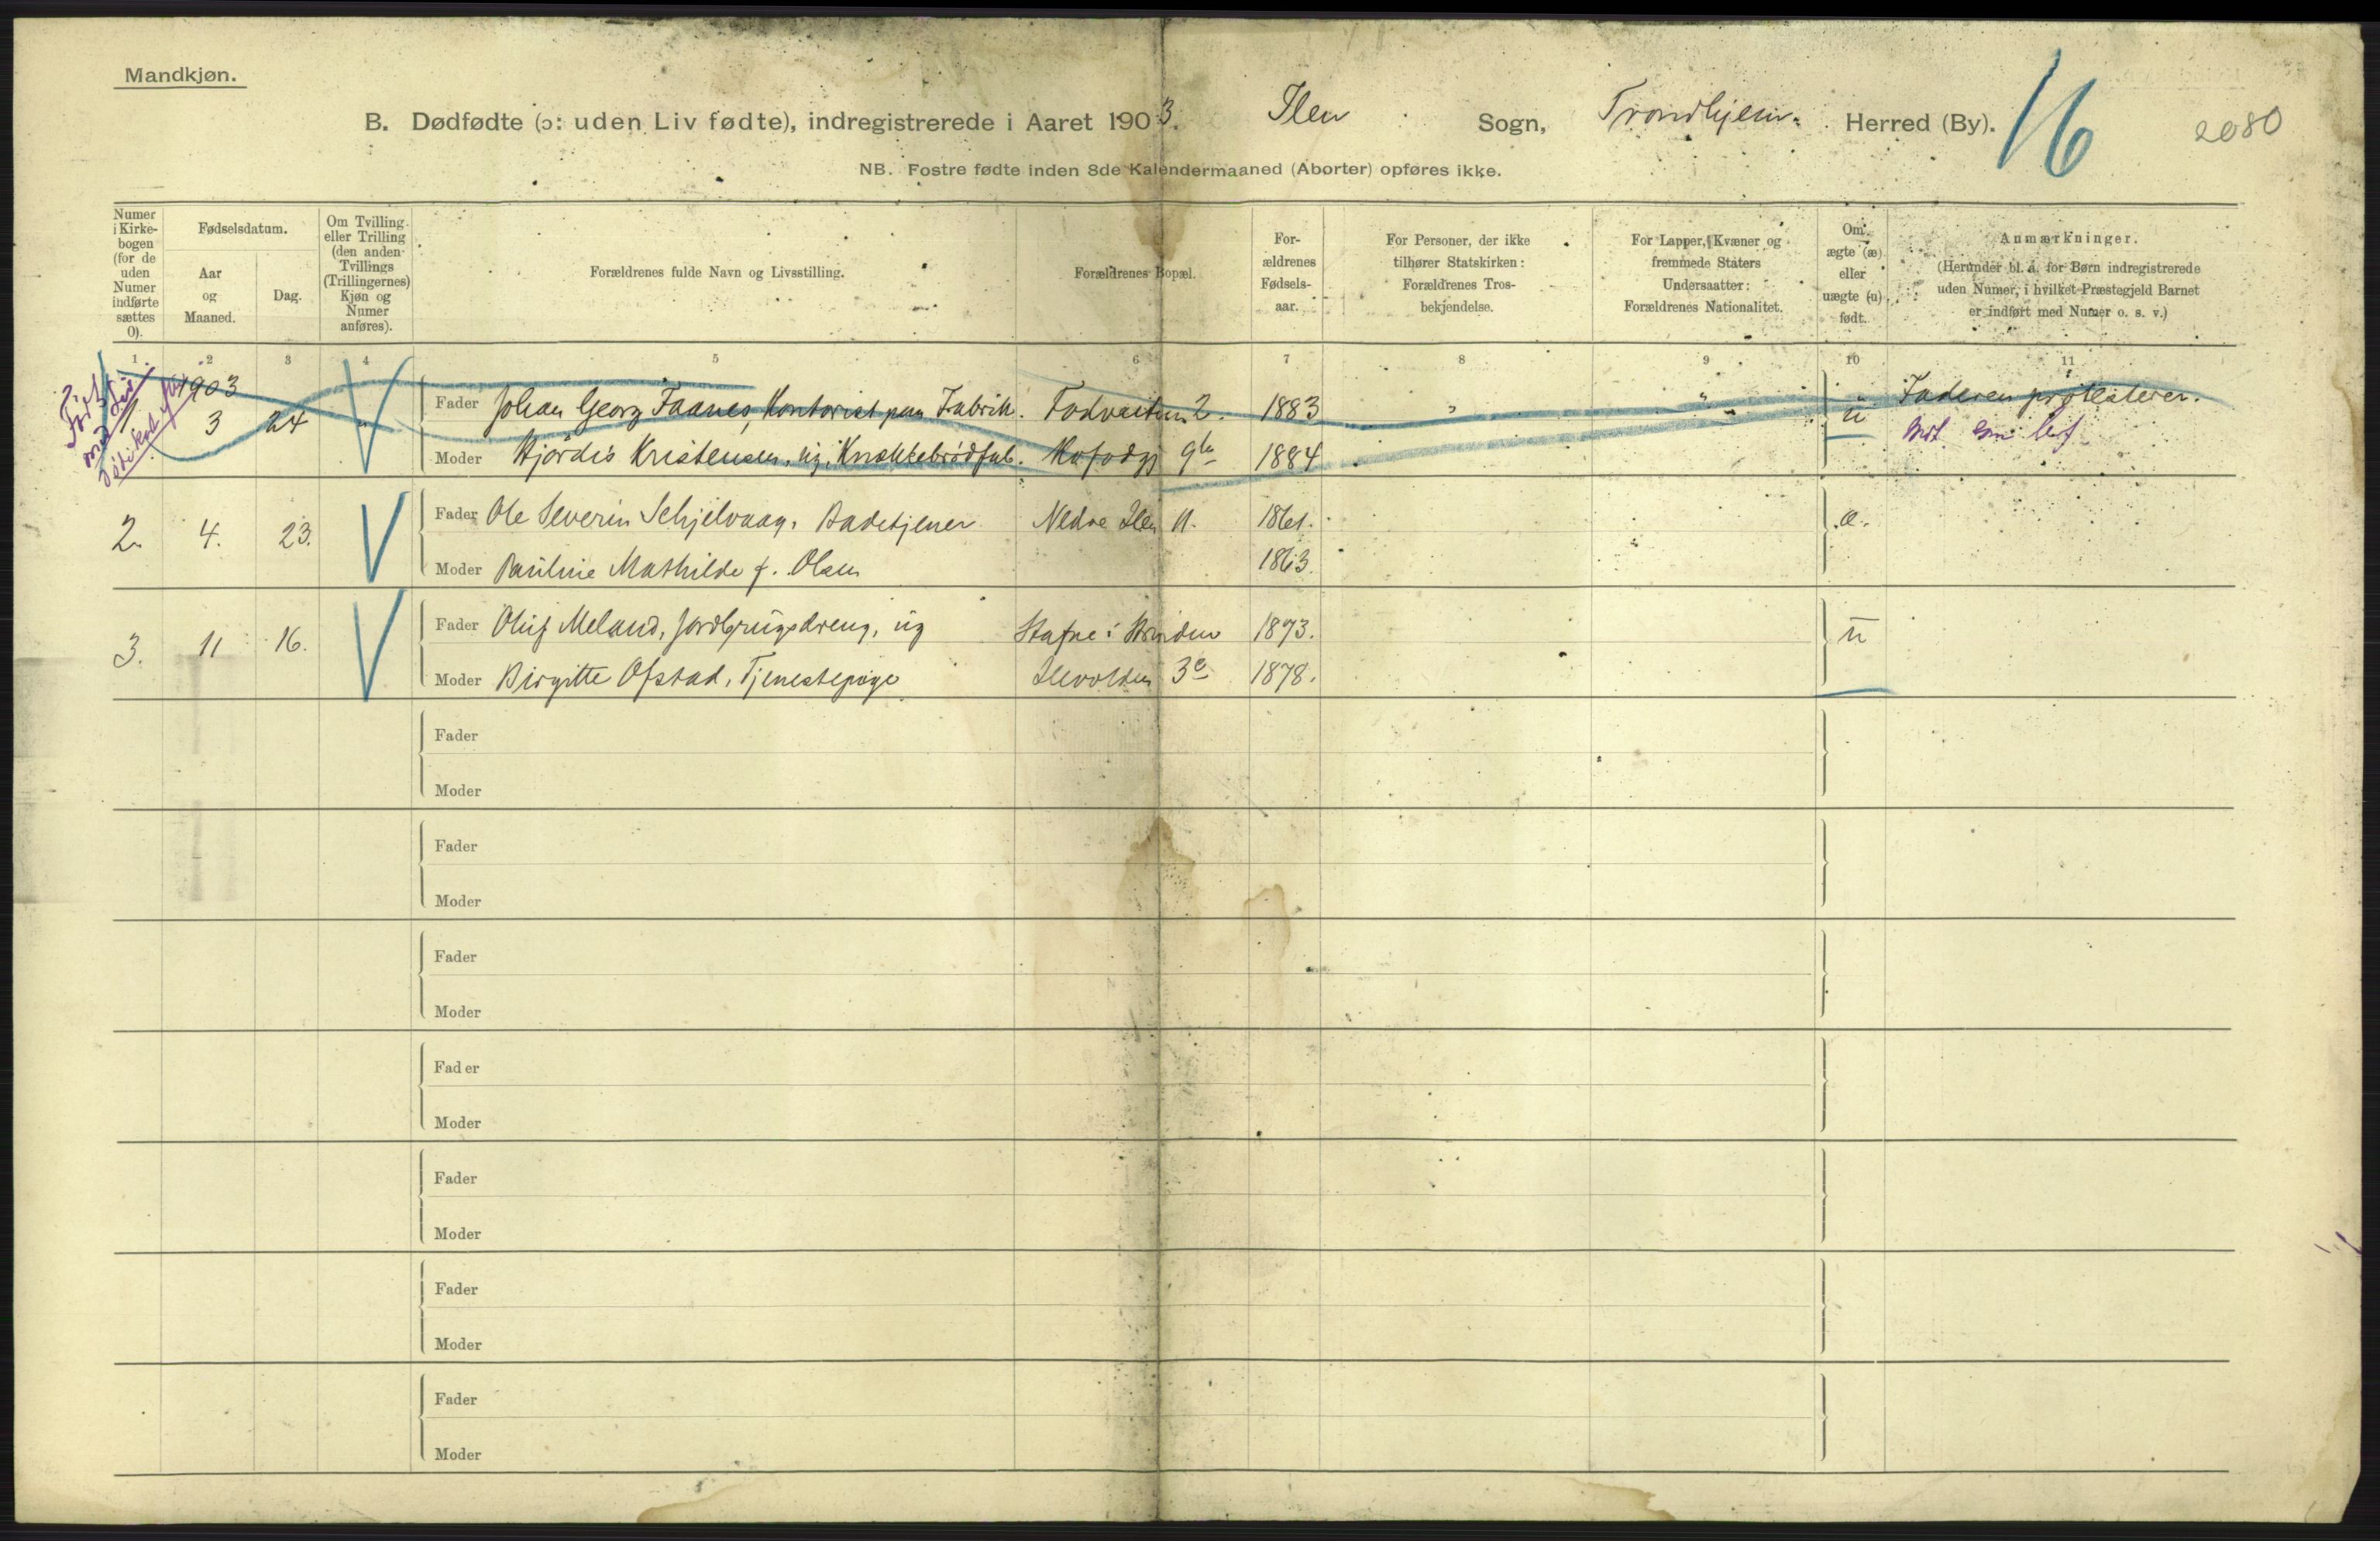 Mandkjøn.
B. Dødfødte (ɔ: uden Liv fødte), indregistrerede i Aaret 1903. Ilen Sogn, Trondhjem. Herred (By). 16 2080
NB. Fostre fødte inden 8de Kalendermaaned (Aborter) opføres ikke.
Numer i Kirke-bogen (for de uden Numer indførte sættes 0).
Fødselsdatum.
Aar og Maaned.
Dag.
Om Tvilling eller Trilling (den anden Tvillings (Trillingernes) Kjøn og Numer anføres).
Forældrenes fulde Navn og Livsstilling.
Forældrenes Bopæl.
For-ældrenes Fødsels-aar.
For Personer, der ikke tilhører Statskirken: Forældrenes Tros-bekjendelse.
For Lapper, Kvæner og fremmede Staters Undersaatter: Forældrenes Nationalitet.
Om ægte (æ) eller uægte (u) født.
Anmærkninger.
(Herunder bl. a. for Børn indregistrerede uden Numer, i hvilket Præstegjeld Barnet er indført med Numer o. s. v.)
1 2 3 4 5 6 7 8 9 10 11
Født med Liv
1903
3 24 " Fader Johan Georg Faanes, Kontorist paa Fabrik. 2. 1883 " " u Faderen protesterer.
Moder Hjørdis Kristensen, ug. Knækkebrødfab. 9b 1884
2. 4. 23. Fader Ole Severin Schjelvaag, Badetjener Nedre Ilen 11. 1861. æ.
Moder Pauline Mathilde f. Olsen 1863.
3. 11 16. Fader Oluf Meland, Jordbrugsdreng, ug Stafne i Strinden 1873. u
Moder Birgitte Ofstad, Tjenestepige Ilevolden 3c 1878.
Fader
Moder
Fader
Moder
Fader
Moder
Fader
Moder
Fader
Moder
Fader
Moder
Fader
Moder